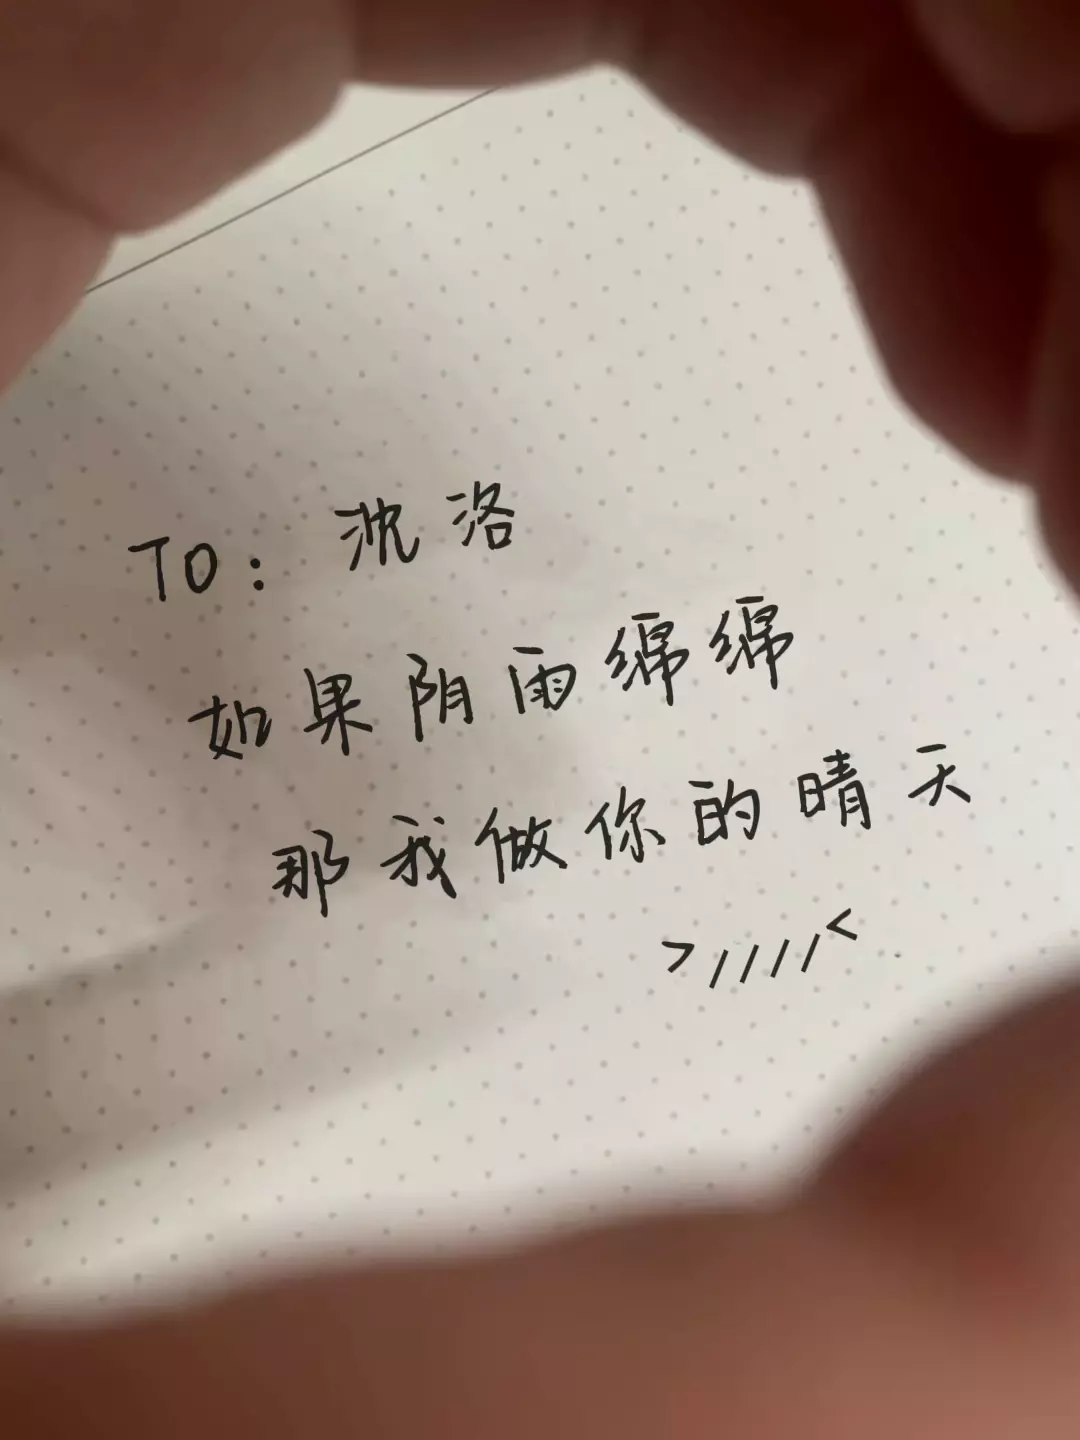 TO：沈洛
如果阴雨绵绵
那我做你的晴天
>////<